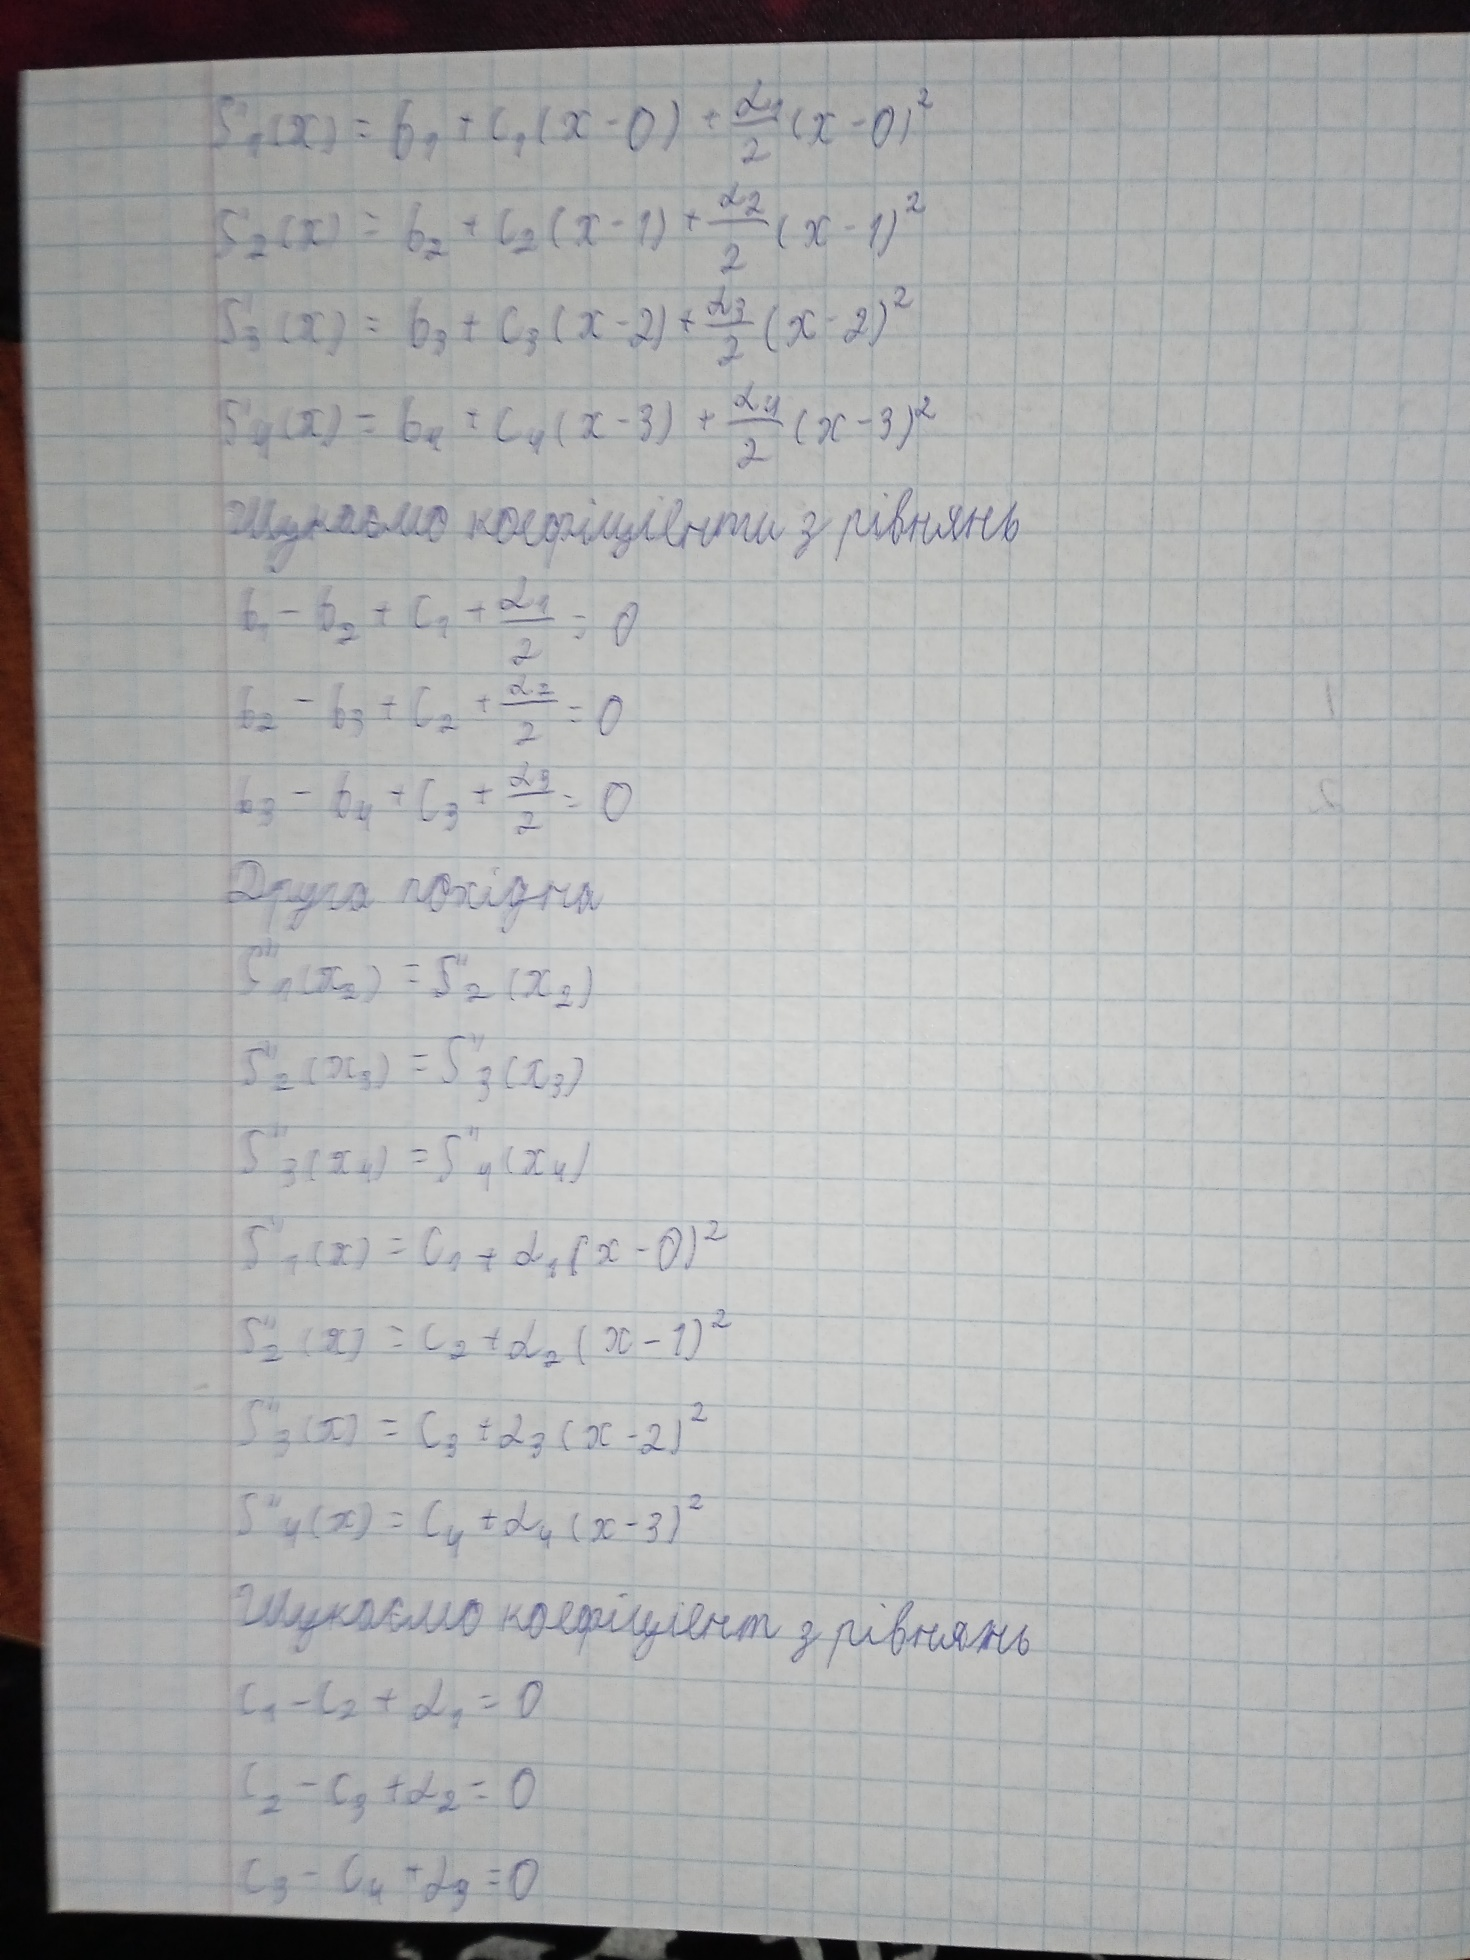 S'₁(x) = b₁ + c₁(x-0) + d₁/2 (x-0)²
S'₂(x) = b₂ + c₂(x-1) + d₂/2 (x-1)²
S'₃(x) = b₃ + c₃(x-2) + d₃/2 (x-2)²
S'₄(x) = b₄ + c₄(x-3) + d₄/2 (x-3)²
Шукаємо коефіцієнти з рівнянь
b₁ - b₂ + c₁ + d₁/2 = 0
b₂ - b₃ + c₂ + d₂/2 = 0
b₃ - b₄ + c₃ + d₃/2 = 0
Друга похідна
S"₁(x₂) = S"₂(x₂)
S"₂(x₃) = S"₃(x₃)
S"₃(x₄) = S"₄(x₄)
S"₁(x) = c₁ + d₁(x-0)²
S"₂(x) = c₂ + d₂(x-1)²
S"₃(x) = c₃ + d₃(x-2)²
S"₄(x) = c₄ + d₄(x-3)²
Шукаємо коефіцієнт з рівнянь
c₁ - c₂ + d₁ = 0
c₂ - c₃ + d₂ = 0
c₃ - c₄ + d₃ = 0